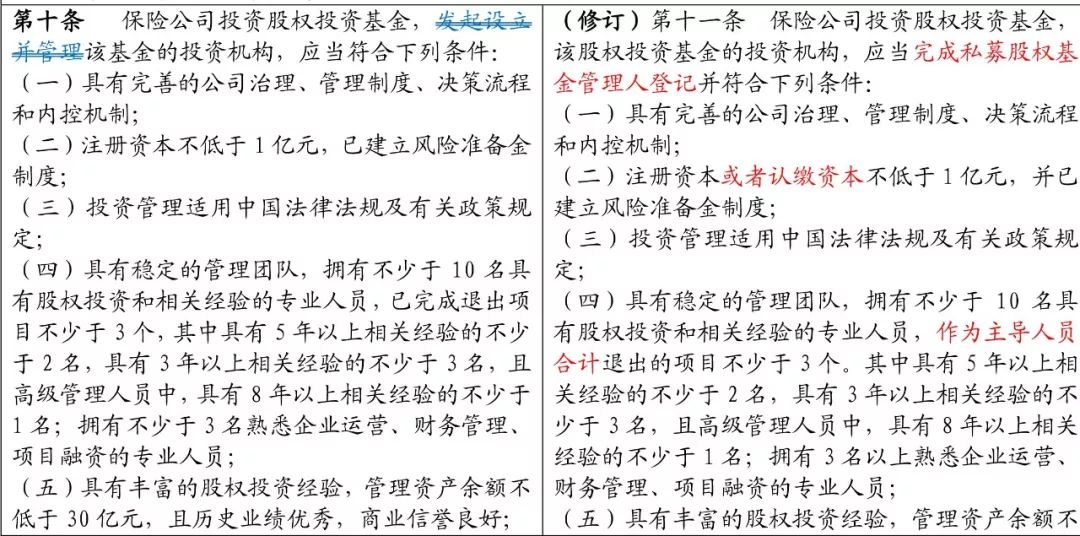 第十条 保险公司投资股权投资基金，发起设立
并管理该基金的投资机构，应当符合下列条件：
（一）具有完善的公司治理、管理制度、决策流程
和内控机制；
（二）注册资本不低于 1 亿元，已建立风险准备金
制度；
（三）投资管理适用中国法律法规及有关政策规
定；
（四）具有稳定的管理团队，拥有不少于 10 名具
有股权投资和相关经验的专业人员，已完成退出项
目不少于 3 个，其中具有 5 年以上相关经验的不少
于 2 名，具有 3 年以上相关经验的不少于 3 名，且
高级管理人员中，具有 8 年以上相关经验的不少于
1 名；拥有不少于 3 名熟悉企业运营、财务管理、
项目融资的专业人员；
（五）具有丰富的股权投资经验，管理资产余额不
低于 30 亿元，且历史业绩优秀，商业信誉良好；
（修订）第十一条 保险公司投资股权投资基金，
该股权投资基金的投资机构，应当完成私募股权基
金管理人登记并符合下列条件：
（一）具有完善的公司治理、管理制度、决策流程
和内控机制；
（二）注册资本或者认缴资本不低于 1 亿元，并已
建立风险准备金制度；
（三）投资管理适用中国法律法规及有关政策规
定；
（四）具有稳定的管理团队，拥有不少于 10 名具
有股权投资和相关经验的专业人员，作为主导人员
合计退出的项目不少于 3 个。其中具有 5 年以上相
关经验的不少于 2 名，具有 3 年以上相关经验的不
少于 3 名，且高级管理人员中，具有 8 年以上相关
经验的不少于 1 名；拥有 3 名以上熟悉企业运营、
财务管理、项目融资的专业人员；
（五）具有丰富的股权投资经验，管理资产余额不